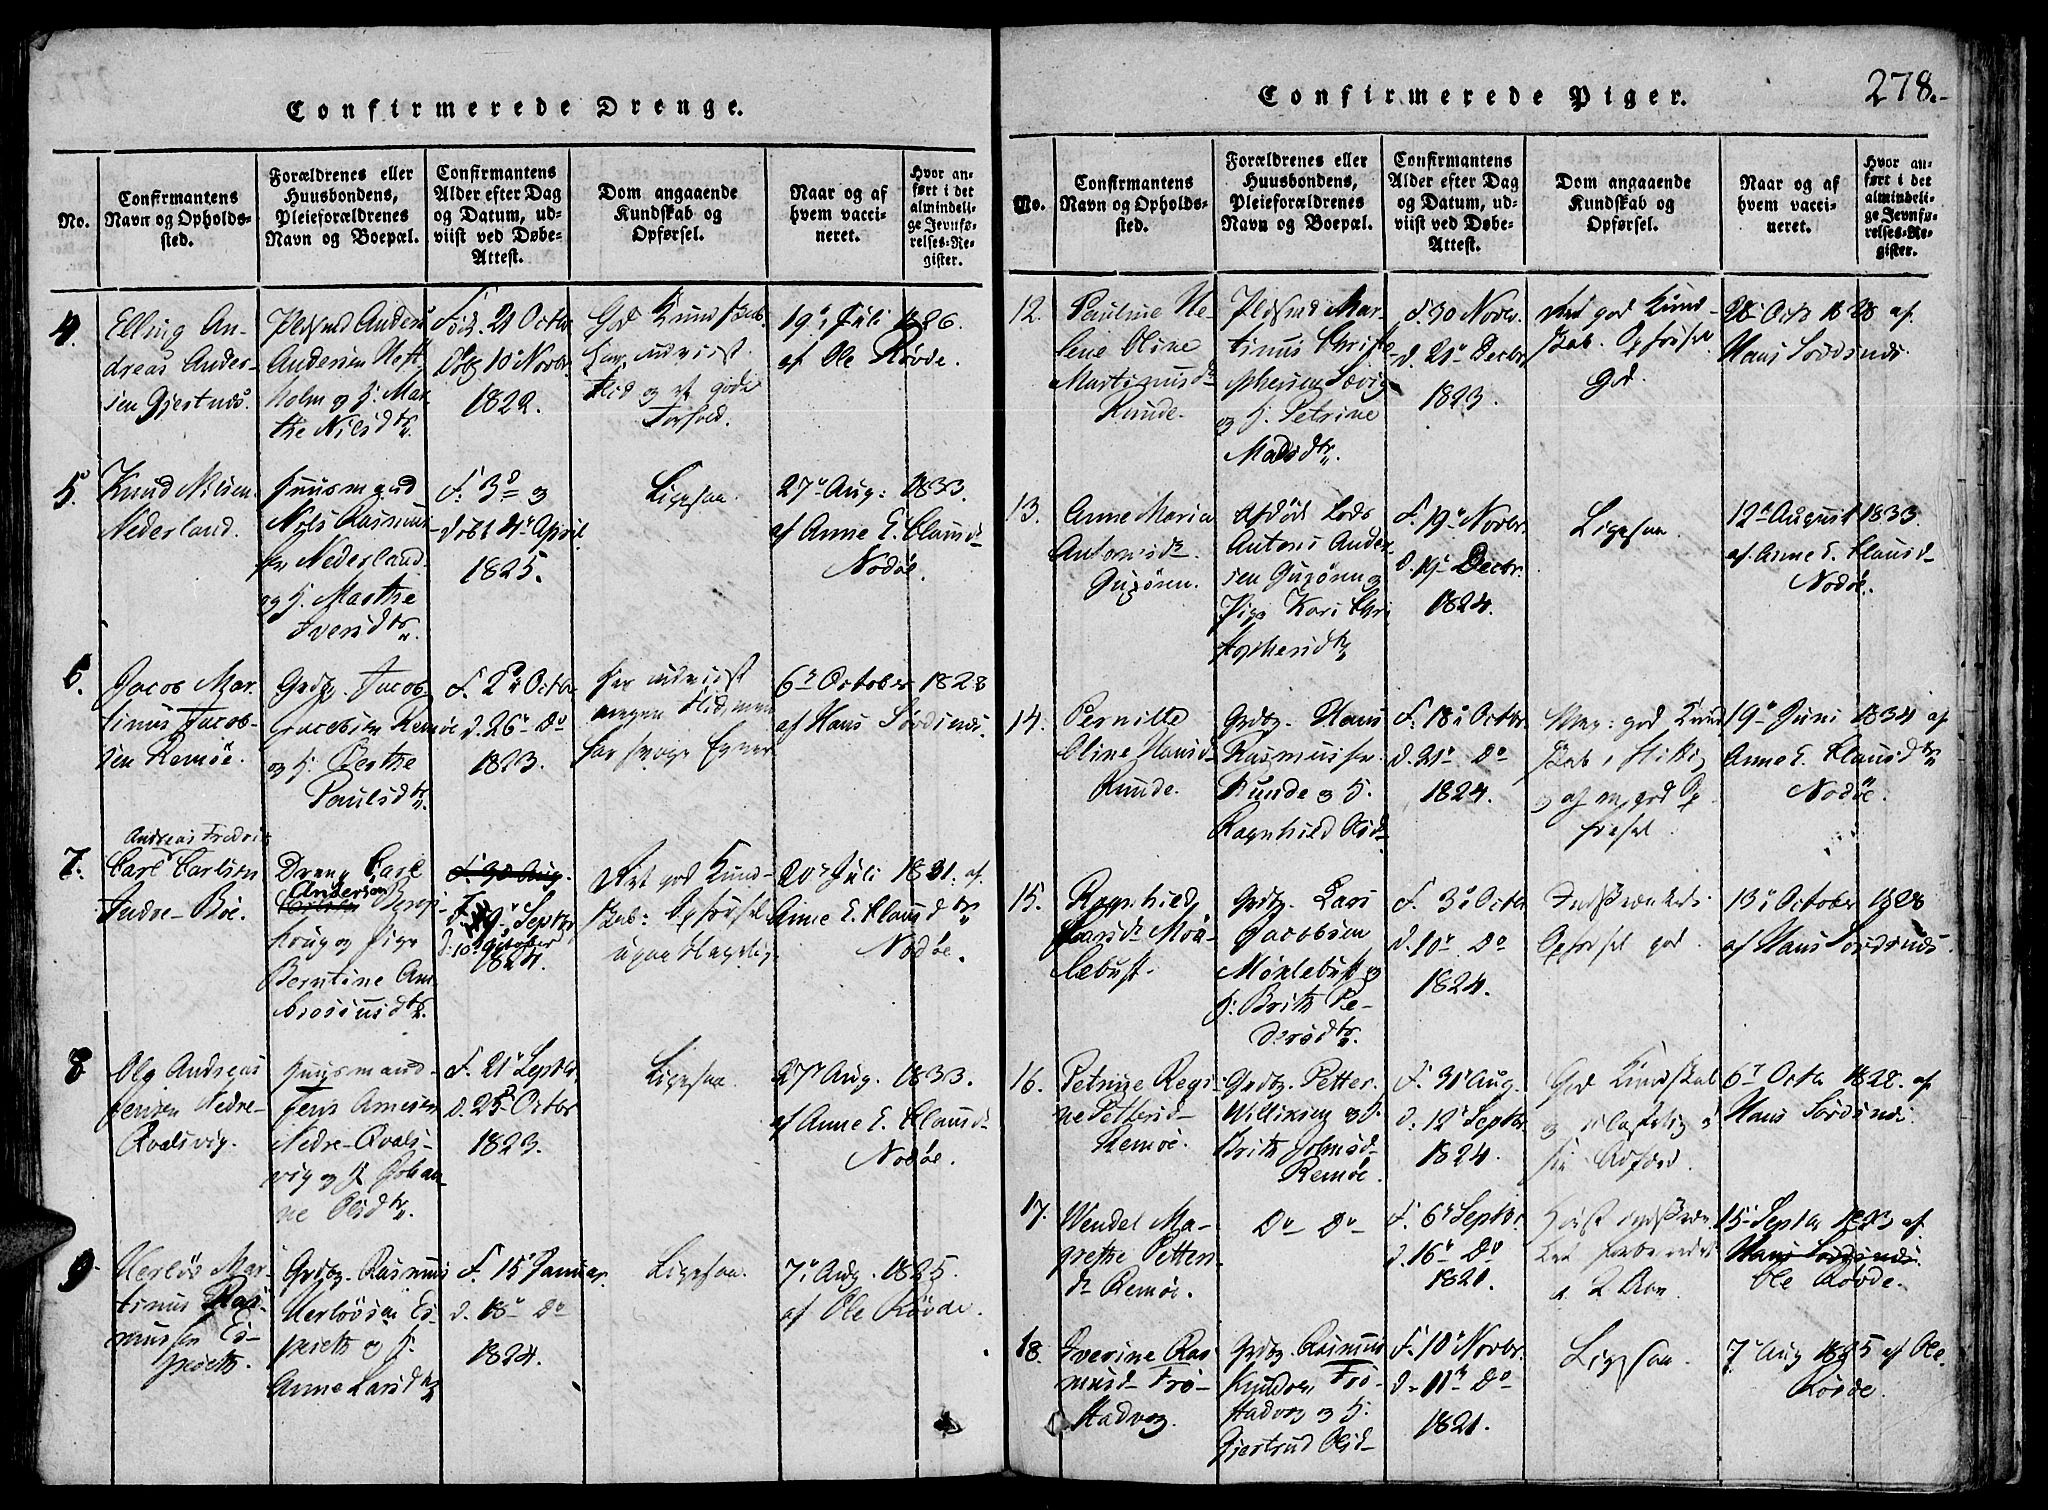 Confirmerede Drenge.
No.
Confirmantens
Navn og Opholds-
sted.
Forældrenes eller
Huusbondens,
Pleieforældrenes
Navn og Boepæl.
Confirmantens
Alder efter Dag
og Datum, ud-
viist ved Døbe-
Attest.
Dom angaaende
Kundskab og
Opførsel.
Naar og af
hvem vacci-
neret.
Hvor an-
ført i det
almindeli-
ge Jevnfø-
relses-Re-
gister.
4.
Elling An-
dreas Ander-
sen Gjertnes.
Anders
Andersen
holm og H. Mar-
the Nilsdtr.
Fød. 21 Octbr.
Døbt 10 Novbr.
1822.
God Kundskab.
Har udviist
Flid og et godt
Forhold.
19 Juli 1826.
af Ole Røvde.
5.
Knud Nilsen
Nederland.
Huusmand
Nils Rasmus-
sen Nederland
og H. Marthe
Iversdtr.
F. 3 og
døbt 4 April
1825.
Ligesaa.
27 Aug: 1833.
af Anne E. Clausd.
Nodøe.
6.
Jacob Mar-
tinus Jacob-
sen Remøe.
Grdbr. Jacob
Jacobsen Remøe
og H. Berthe
Paulsdtr.
F. 2 Octbr.
d. 26 Do
1823.
Har udviist
megen Flid, men
har svage Evner
6 October 1828
af Hans Sordsnes.
7.
Andreas Fredrik
Carl Carlsen
Indre-Bøe.
Dreng Carl
Andersen
og Pige
Berntine Am-
brosiusdtr.
F. 30 Aug.
Septbr
d. 10 October
1824.
Ret god Kund-
skab: Opførsel
20 Juli 1831. af
Anne E. Clausdtr
Nodøe.
8
Ole Andreas
Jensen Nedre-
Qvalsvig.
Huusmand
Jens Arnesen
Nedre-Qvals-
vig og H. Johan-
ne Olsdtr.
F. 21 Septbr.
d. 25 Octbr
1823.
Ligesaa.
27 Aug. 1833.
af Anne E. Clausd.
Nodøe.
9
Herløv Mar-
tinus Ras-
mussen Es-
peseth.
Grdbr. Rasmus
Herløvsen Es-
peseth og H.
Anne Larsdtr
F. 15 Januar.
d. 18 Do
1824.
Ligesaa.
7 Aug. 1825.
af Ole Røvde.
278.
Confirmerede Piger.
No.
Confirmantens
Navn og Opholds-
sted.
Forældrenes eller
Huusbondens,
Pleieforældrenes
Navn og Boepæl.
Confirmantens
Alder efter Dag
og Datum, ud-
viist ved Døbe-
Attest.
Dom angaaende
Kundskab og
Opførsel.
Naar og af
hvem vacci-
neret.
Hvor an-
ført i det
almindeli-
ge Jevnfø-
relses-Re-
gister.
12.
Pauline He-
lene Oline
Martinusdr
Runde.
Mar-
tinus Christo-
phersen Sævig
og H. Petrine
Madsdtr.
F. 30 Novbr.
d. 21 Decbr
1823.
god Kund-
skab. Opførsel
God.
28 Octb 1828 af
Hans Sordsnes
13.
Anne Maria
Antonsdr
Gurøren.
Afdøde Lods
Antons Ander-
sen Gurøren og
Pige Kari Chri-
stophersdtr
F. 19 Novbr
d. 19 Decbr.
1824.
Ligesaa.
12 August 1833
af Anne E. Clausd-
Nodøe.
14.
Pernille
Oline Hansd-
Runde.
Grdbr. Hans
Rasmussen
Runde og H.
Ragnhild Olsd-
F. 18 Octbr
d. 21 Do
1824.
Meg: god Kund-
skab, flittig
og af en god Op-
førsel.
19 Juni 1834 af
Anne E. Clausdtr
Nodøe.
15.
Ragnhild
Larsdr Møk-
lebust.
Grdbr. Lars
Jacobsen
Møklebust og
H. Brithe Pe-
dersdtr.
F. 3 Octbr
d. 10 Do
1824.
Indskrænket.
Opførsel god.
13 October 1828
af Hans Sordsnes.
16.
Petrine Regi-
ne Pettersd-
Remøe.
Grdbr. Petter
Willumsen og H.
Brithe Johnsd-
Remøe.
F. 31 Aug.
d. 12 Septbr.
1824.
God Kundskab
og sædelig i
sin Adfærd.
6 Octbr 1828. af
Hans Sordsnes.
17.
Wendel Ma-
grethe Petters-
dr Remøe.
Do Do
F. 6 Septbr.
d. 16 Do
1821.
Høist indskræn-
ket forberedet
i 2 Aar.
15 Septbr 1823 af
Hans Sordsnes
Ole Røvde.
18.
Iverine Ras-
musd- Frø-
stadvog.
Grdbr. Rasmus
Knudsen Frø-
stadvog og H.
Gjertrud Olsd-
F. 10 Novbr.
d. 11 Do
1821.
Ligesaa.
7 Aug 1825 af Ole
Røvde.